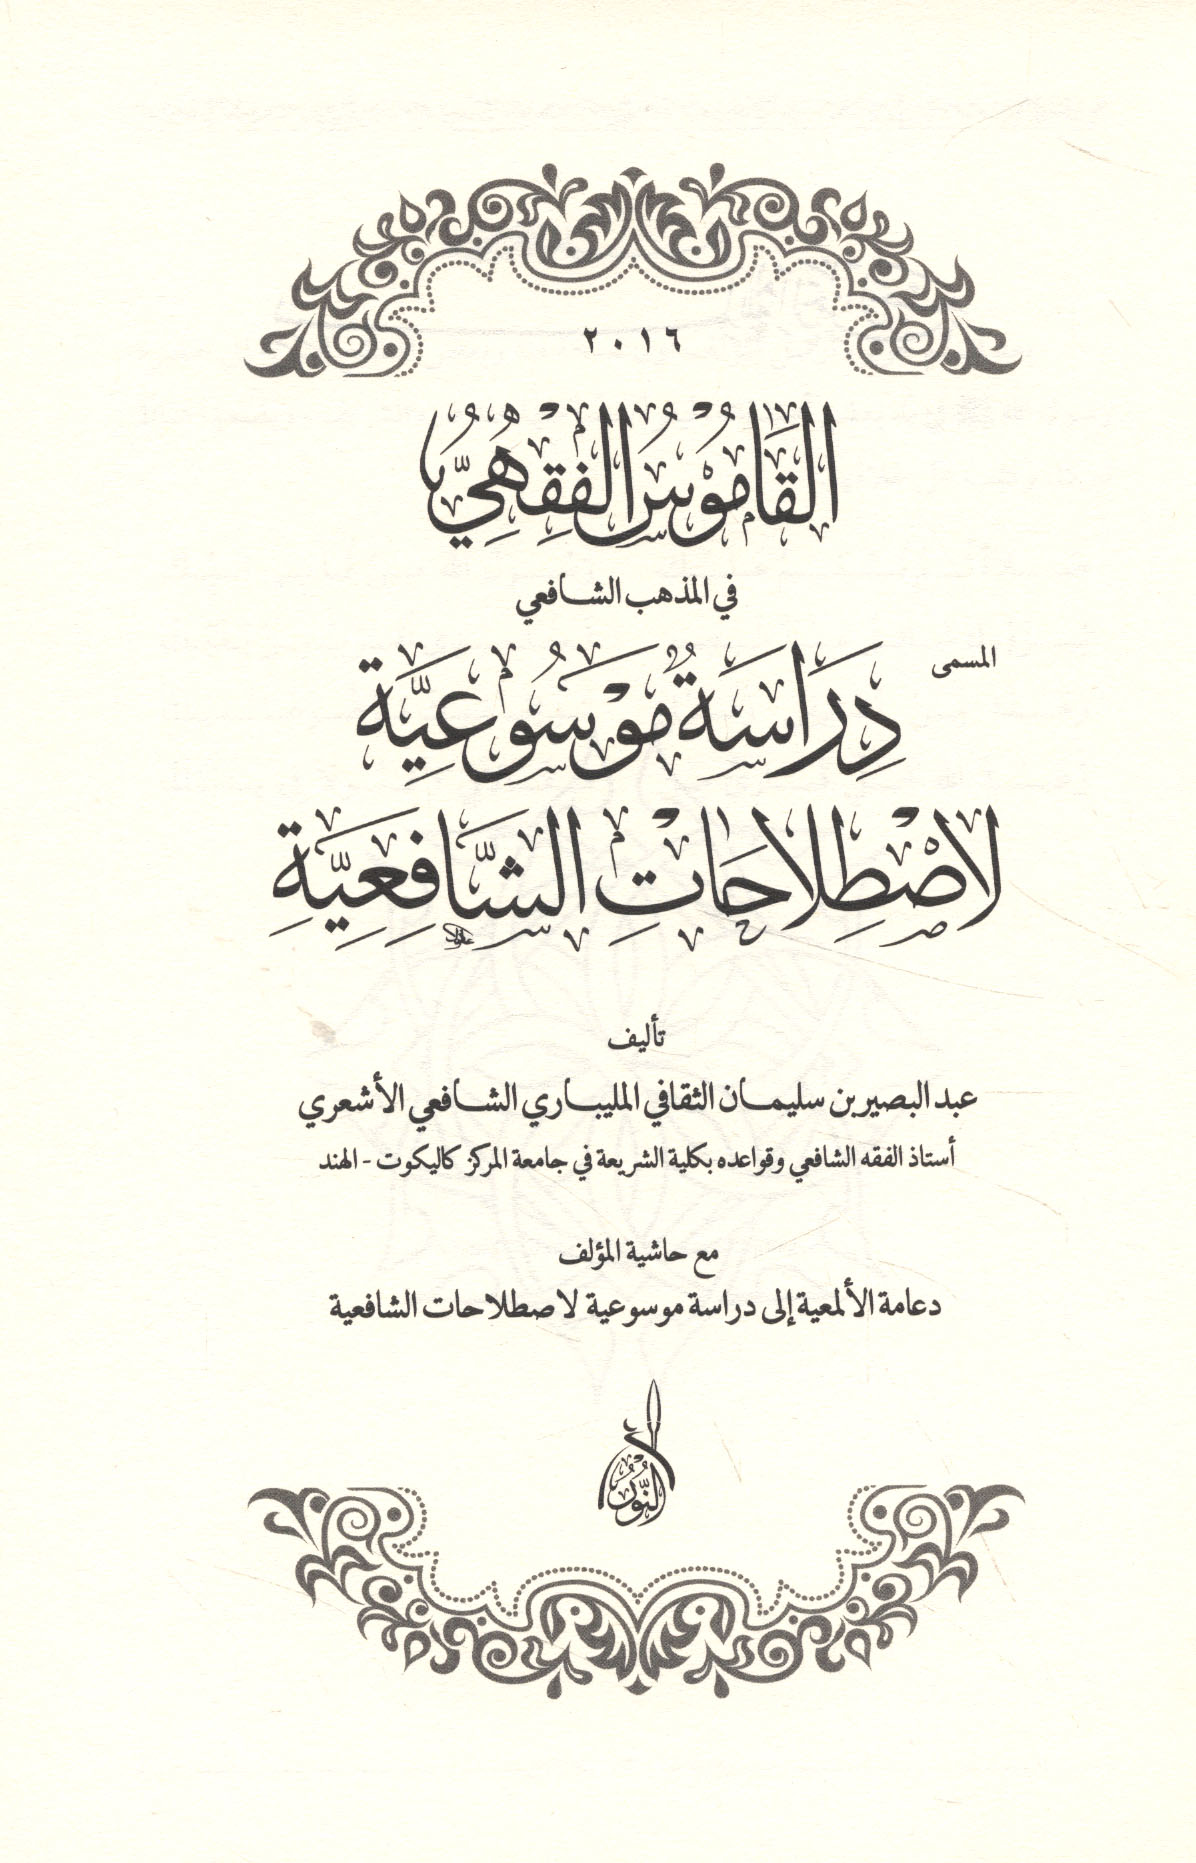 ٢٠١٦
القَامُوْسُ الفِقْهِيُّ
في المذهب الشافعي
المسمى
دِرَاسَةٌ مَوْسُوعِيَّة
لاصْطِلاحَاتِ الشَّافِعِيَّةِ
تأليف
عبد البصير بن سليمان الثقافي المليباري الشافعي الأشعري
أستاذ الفقه الشافعي وقواعده بكلية الشريعة في جامعة المركز كاليكوت - الهند
مع حاشية المؤلف
دعامة الألمعية إلى دراسة موسوعية لاصطلاحات الشافعية
النُّور